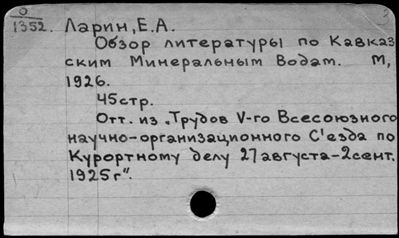 О
1352. Ларин, Е.А.
Обзор литературы по Кавказ
ским Минеральным Водам. М,
1926.
45стр.
Отт. из „Трудов V-го Всесоюзного
научно-организационного С'езда по
Курортному делу 27 августа-2 сент.
1925 г".